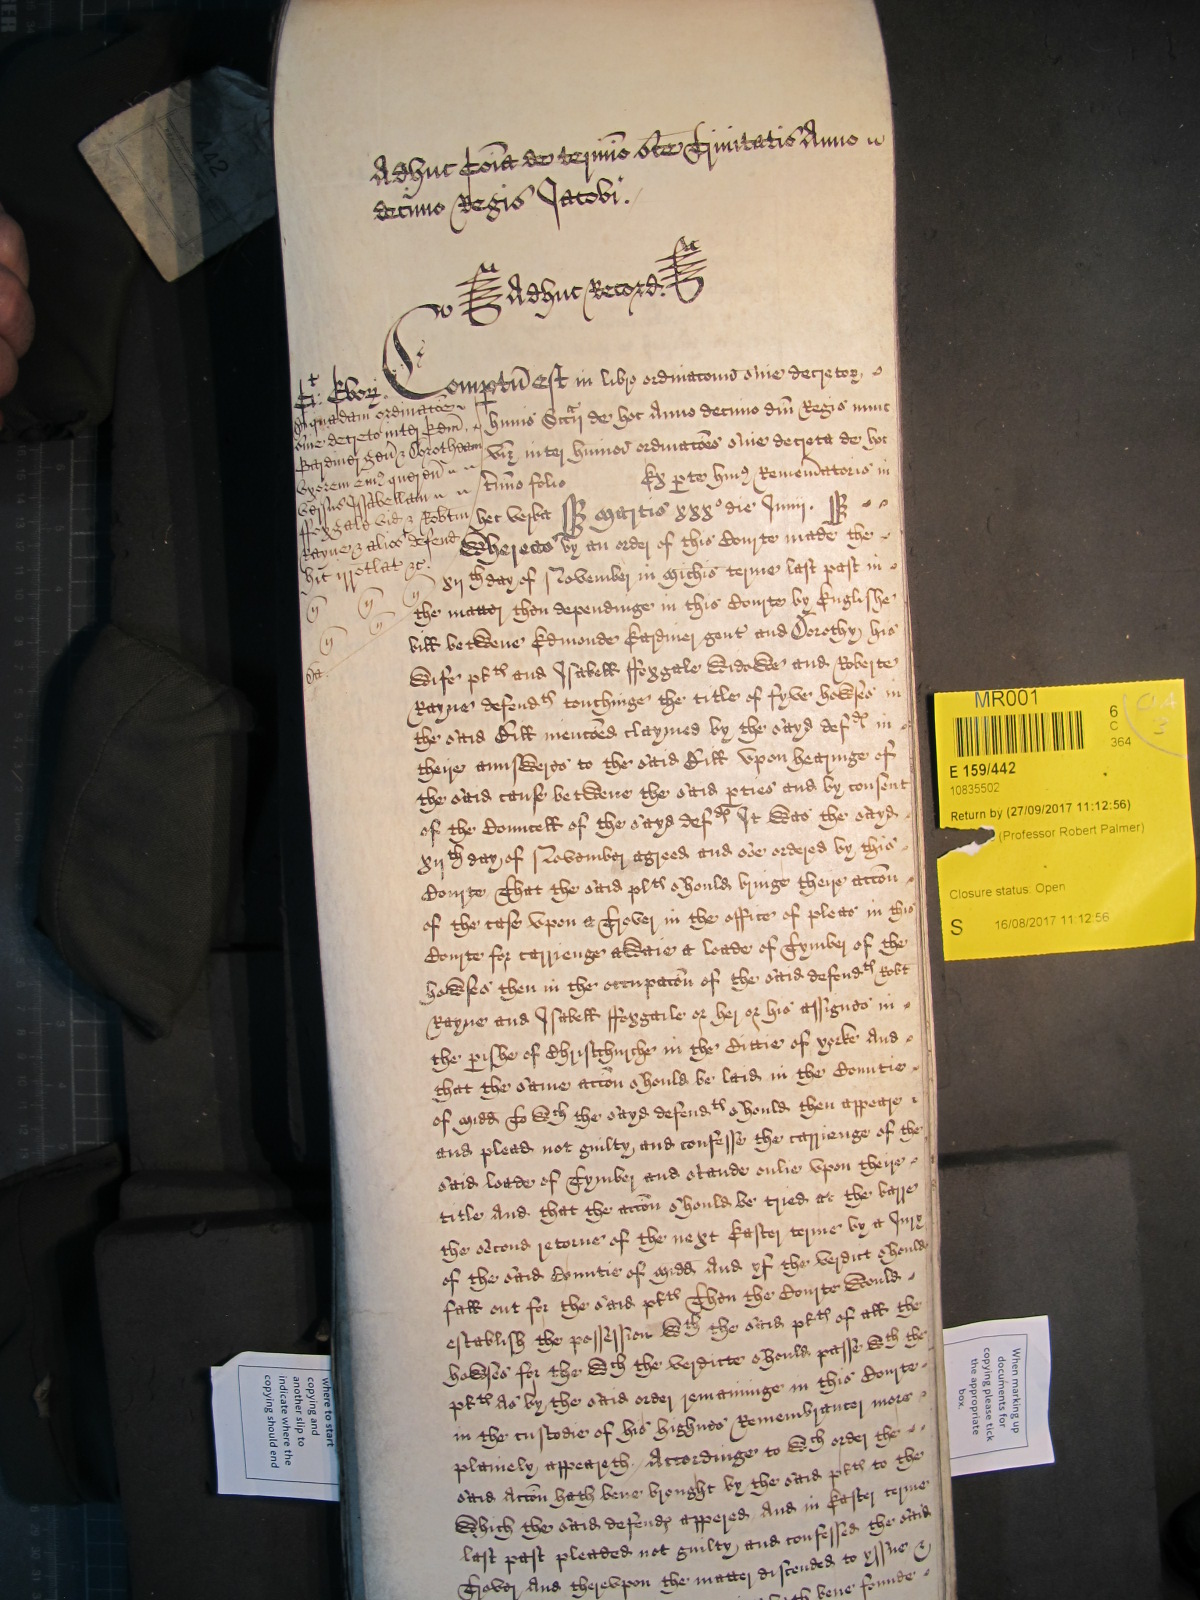 Adhuc Coia de termio sce Trinitatis Anno
decimo Regis Jacobi.
Adhuc Record.
Comptu est in libro ordinaconu sive decretor
huius Sccrii de hoc Anno decimo dni Regis nunc
viz inter huiusmodi ordinacoes sive decreta de hoc
timio folio Ex pte huius Rememoratoris in
hec verba Martis xxxo die Junij.
Ebor.
quadam ordinacoe
sive decreto inter Edm
Gardiner gen & Dorotheam
uxorem eius quer
versus Issabellam
ffoxgale vid & Robtm
Rayne & alios defend
hic irrotlat &c.
Whereas by an order of this Courte made the
xijth day of November in Michis terme last past in
the matter then dependinge in this Courte by Englishe
bill betwene Edmonde Gardiner gent and Dorothy his
wife plts and Isabell ffoxgale widowe and Roberte
Rayne defendts touchinge the title of fyve howses in
the said Bill menconed claymed by the sayd defts in
theire answeres to the said Bill upon hearinge of
the said cause betwene the said pties and by consent
of the Councell of the sayd defts It was the sayd
xijth day of November agreed and soe ordered by this
Courte That the said plts should bringe theire accon
of the case upon a Trover in the office of pleas in this
Courte for carrienge awaie a loade of Tymber of the
howses then in the occupacon of the said defendts Robt
Rayne and Isabell ffoxgaile or her or his assignes in
the pishe of Christchurche in the Cittie of yorke And
that the same accon should be laid in the Countie
of Midd To wch the sayd defendts should then appeare
and plead not guilty and confesse the carrienge of the
said loade of Tymber and stande onlie upon theire
title And that the accon should be tried at the barre
the second retorne of the next Easter terme by a Jury
of the said Countie of Midd And yf the verdict should
fall out for the said plts Then the Courte would
establish the possession wth the said plts of all the
howses for the wch the verdicte should passe wth the
plts As by the said order remaininge in this Courte
in the custodie of his highnes Remembrancer more
plainely appeareth Accordinge to wch order the
said Accon hath bene brought by the said plts to the
which the said defends appered And in Easter terme
last past pleaded not guilty and confessed the said
Trover And thereupon the matter discended to yssue
bene founde
442
MR001
6
C
364
E 159/442
10835502
Return by (27/09/2017 11:12:56)
(Professor Robert Palmer)
Closure status: Open
S 16/08/2017 11:12:56
where to start
copying and
another slip to
indicate where the
copying should end
When marking up
documents for
copying please tick
the appropriate
box.